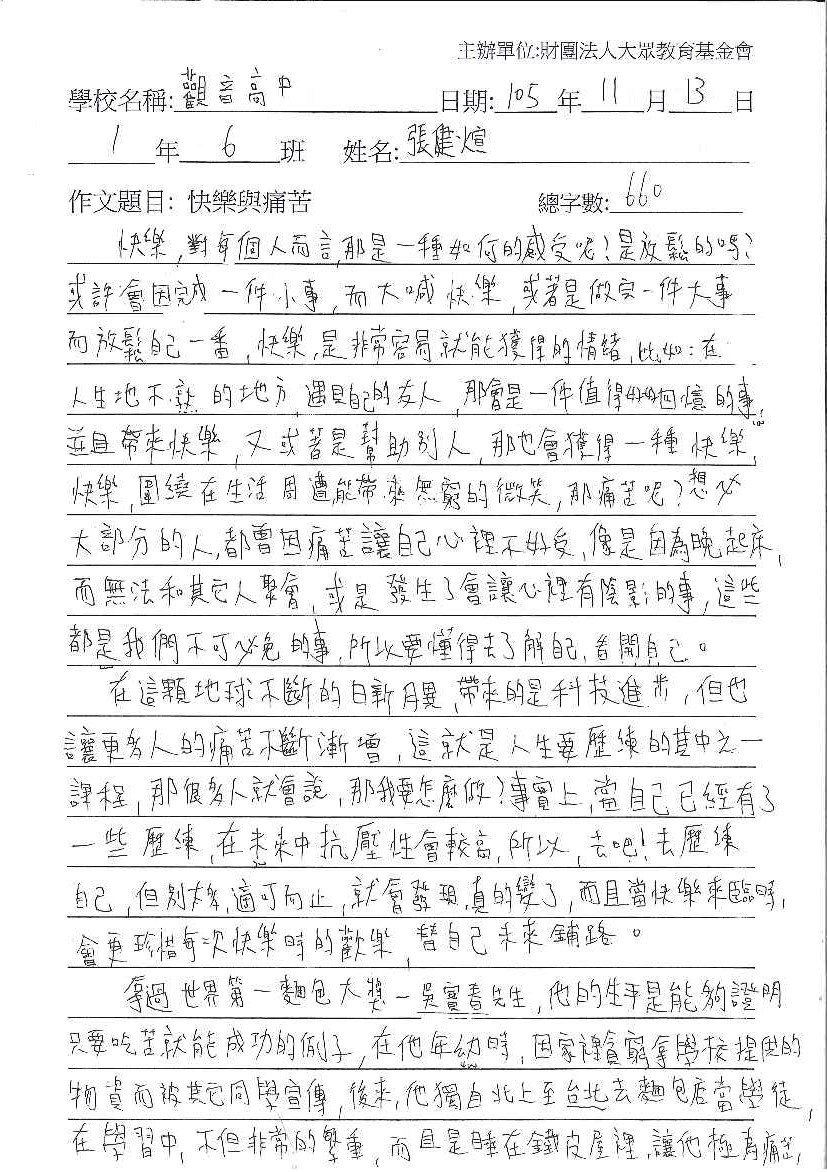 主辦單位:財團法人大眾教育基金會
學校名稱:觀音高中 日期: 105 年 11 月 13 日
1 年 6 班 姓名:張健煊
作文題目: 快樂與痛苦 總字數: 660
快樂,對每個人而言,那是一種如何的感受呢?是放鬆的嗎?
或許會因完成一件小事,而大喊快樂,或著是做完一件大事
而放鬆自己一番,快樂,是非常容易就能獲得的情緒,比如:在
人生地不熟的地方,遇見自己的友人,那會是一件值得好好回憶的事,
並且帶來快樂,又或著是幫助別人,那也會獲得一種快樂,
快樂,圍繞在生活周遭,能帶來無窮的微笑,那痛苦呢?想必
大部分的人,都曾因痛苦讓自己心裡不好受,像是因為晚起床,
而無法和其它人聚會,或是發生了會讓心裡有陰影的事,這些
都是我們不可必免的事,所以要懂得去了解自己,看開自己。
在這顆地球不斷的日新月異,帶來的是科技進步,但也
讓更多人的痛苦不斷漸增,這就是人生要歷練的其中之一
課程,那很多人就會說,那我要怎麼做?事實上,當自己已經有了
一些歷練,在未來中抗壓性會較高,所以,去吧!去歷練
自己,但別太多,適可而止,就會發現真的變了,而且當快樂來臨時,
會更珍惜每次快樂時的歡樂,替自己未來鋪路。
拿過世界第一麵包大獎-吳寶春先生,他的生平是能夠證明
只要吃苦就能成功的例子,在他年幼時,因家裡貧窮拿學校提供的
物資而被其它同學宣傳,後來,他獨自北上至台北去麵包店當學徒,
在學習中,不但非常的繁重,而且是睡在鐵皮屋裡,讓他極為痛苦,